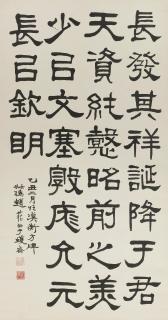 長發其祥誕降于君
天資純懿昭前之美
少㠯文塞敦庬允元
長㠯欽明
乙丑 月 漢衡方碑